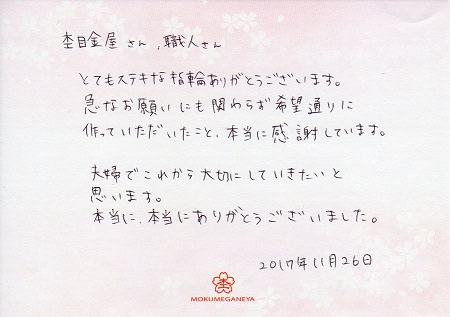 杢目金屋さん、職人さん
とてもステキな指輪ありがとうございます。
急なお願いにも関わらず希望通りに
作っていただいたこと、本当に感謝しています。
夫婦でこれから大切にしていきたいと
思います。
本当に、本当にありがとうございました。
2017年11月26日
MOKUMEGANEYA